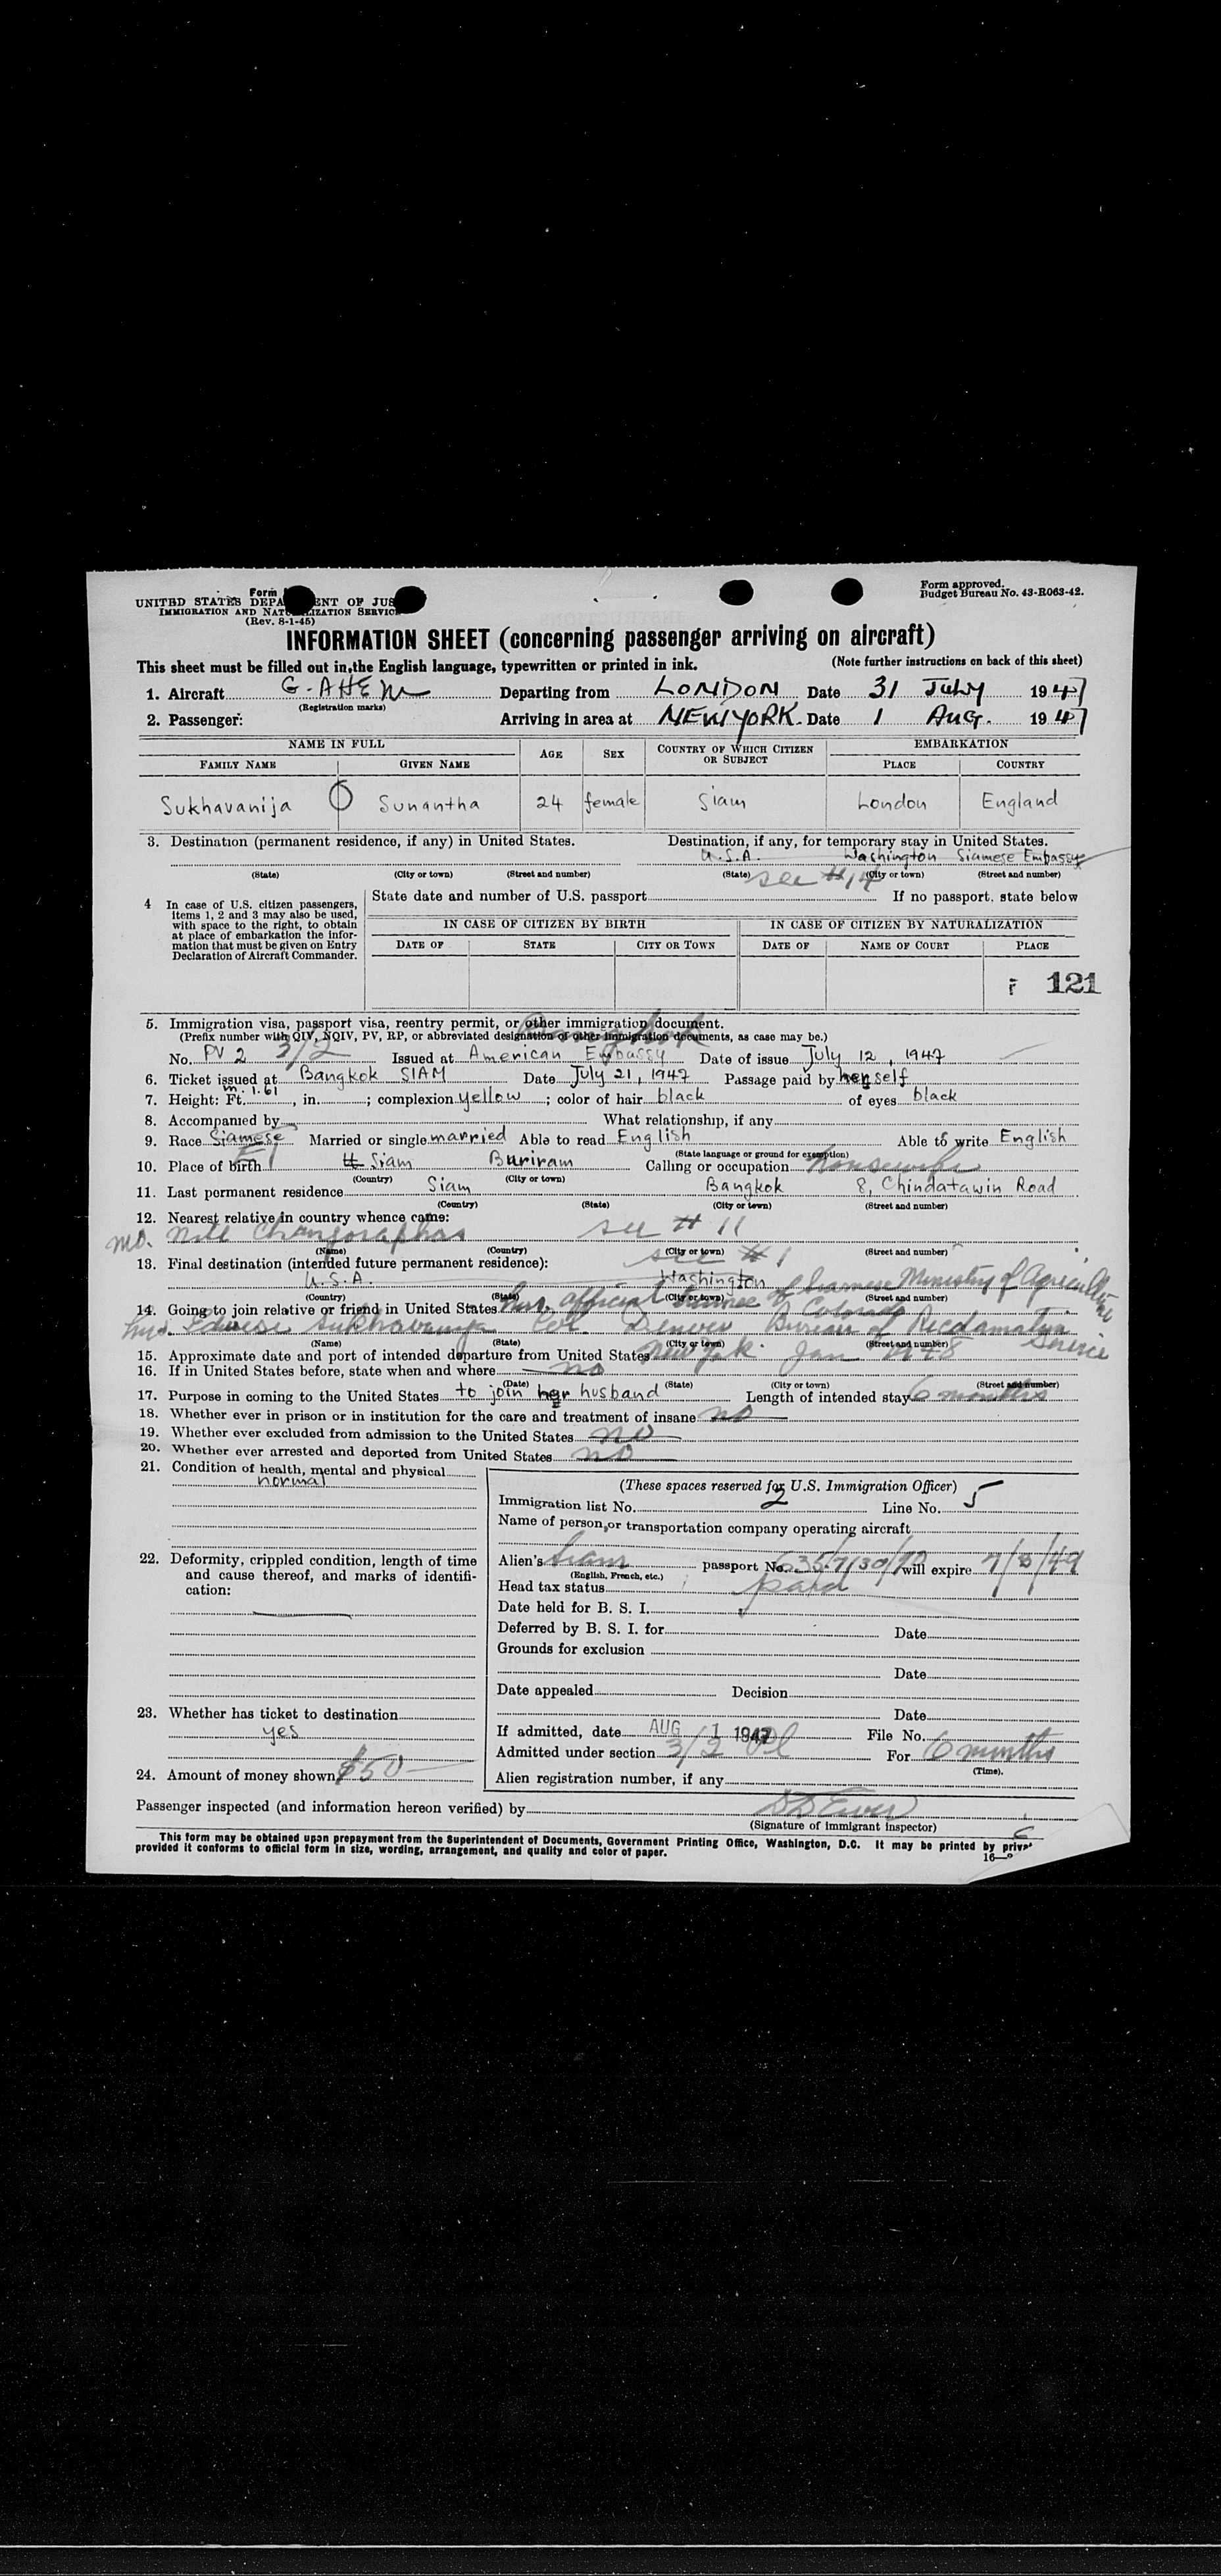 Form
UNITED STATES DEPA ENT OF JUS
IMMIGRATION AND NAT IZATION SERVIC
(Rev. 8-1-45)
Form approved.
Budget Bureau No. 43-R063-42.
INFORMATION SHEET (concerning passenger arriving on aircraft)
This sheet must be filled out in the English language, typewritten or printed in ink. (Note further instructions on back of this sheet)
1. Aircraft G-AHEM Departing from LONDON Date 31 July 1947
(Registration marks)
2. Passenger: Arriving in area at NEW YORK Date 1 AUG. 1947
NAME IN FULL AGE SEX COUNTRY OF WHICH CITIZEN OR SUBJECT EMBARKATION
FAMILY NAME GIVEN NAME PLACE COUNTRY
Sukhavanija Sunantha 24 female Siam London England
3. Destination (permanent residence, if any) in United States. Destination, if any, for temporary stay in United States.
U.S.A. Washington Siamese Embassy
(State) (City or town) (Street and number) (State) see #14 (City or town) (Street and number)
4 In case of U.S. citizen passengers, items 1, 2 and 3 may also be used, with space to the right, to obtain at place of embarkation the information that must be given on Entry Declaration of Aircraft Commander.
State date and number of U.S. passport If no passport, state below
IN CASE OF CITIZEN BY BIRTH IN CASE OF CITIZEN BY NATURALIZATION
DATE OF STATE CITY OR TOWN DATE OF NAME OF COURT PLACE
121
5. Immigration visa, passport visa, reentry permit, or other immigration document.
(Prefix number with QIV, NQIV, PV, RP, or abbreviated designation of other immigration documents, as case may be.)
Bangkok
No. PV 2 3/2 Issued at American Embassy Date of issue July 12, 1947
6. Ticket issued at Bangkok SIAM Date July 21, 1947 Passage paid by herself
7. Height: Ft. m. 1.61, in. ; complexion yellow ; color of hair black of eyes black
8. Accompanied by What relationship, if any
9. Race Siamese Married or single married Able to read English Able to write English
(State language or ground for exemption)
10. Place of birth Siam Buriram Calling or occupation housewife
(Country) (City or town)
11. Last permanent residence Siam Bangkok 8, Chindatawin Road
(Country) (State) (City or town) (Street and number)
12. Nearest relative in country whence came:
mo. see # 11
(Name) (Country) (City or town) (Street and number)
13. Final destination (intended future permanent residence): see # 1
U.S.A. Washington
(Country) (State) (City or town) (Street and number)
14. Going to join relative or friend in United States official trainee of Siamese Ministry of Agriculture
hus. Sukhavanija Col. Denver Bureau of Reclamation Service
(Name) (State) (City or town) (Street and number)
15. Approximate date and port of intended departure from United States New York. Jan 1948
16. If in United States before, state when and where no
(Date) (State) (City or town) (Street and number)
17. Purpose in coming to the United States to join her husband Length of intended stay 6 months
18. Whether ever in prison or in institution for the care and treatment of insane no
19. Whether ever excluded from admission to the United States no
20. Whether ever arrested and deported from United States no
21. Condition of health, mental and physical
normal
22. Deformity, crippled condition, length of time and cause thereof, and marks of identification:
23. Whether has ticket to destination
yes
24. Amount of money shown $50
(These spaces reserved for U.S. Immigration Officer)
Immigration list No. 2 Line No. 5
Name of person or transportation company operating aircraft
Alien's Siam passport No. will expire 7/3/49
(English, French, etc.)
Head tax status paid
Date held for B. S. I.
Deferred by B. S. I. for Date
Grounds for exclusion
Date
Date appealed Decision
Date
If admitted, date AUG 1 1947 File No.
Admitted under section 3/2 For 6 months
(Time).
Alien registration number, if any
Passenger inspected (and information hereon verified) by
(Signature of immigrant inspector)
This form may be obtained upon prepayment from the Superintendent of Documents, Government Printing Office, Washington, D.C. It may be printed by priva
provided it conforms to official form in size, wording, arrangement, and quality and color of paper.
16—